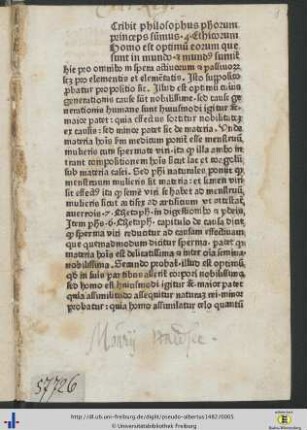 Cribit philosophus phorum
princeps summus. 4. Ethicorum
Homo est optimū eorum que
sunt in mundo. & mundꝰ sumit̄
hic pro omnibꝰ in spera actiuorum & passiuorꝫ
seꝫ pro elementis et elemētatis. Illo supposito
ꝓbatur propositio sic. Illud est optimū cuiꝰ
generationis cause sūt nobilissime. sed cause ge
nerationis humane sunt huiusmodi igitur &c̄
maior patet: quia effectus sortitur nobilitatē
ex causis: sed minor patet sic de materia. Vn̄ de
materia hoīs fm̄ medicum ponit̄ esse menstruū
mulieris cum spermate viri. ita ꝙ illa ambo in
trant compositionem hoīs sicut lac et coagulū
sub materia casei. Sed phī naturales ponūt ꝙ
menstruum mulieris sit materia: et semen viri
sit effectꝰ ita ꝙ semē viri se habet ad menstruū
mulieris sicut artifex ad artificium vt testatur
auerrois. 7. Metaphi. in digestione
Item phs. 6. Metaphi. capitulo de causa dicit
ꝙ sperma viri reducitur ad causam effectiuam
que quemadmodum dicitur sperma. patet ꝙ
materia hoīs est delicatissima & inter oīa semina
nobilissima. Secundo probat̄. illud est optimū
qd̄ in suis partibus asserit corpori nobilissimo
sed homo est huiusmodi igitur &c̄. maior patet
quia assimilando assequitur naturaꝫ rei. minor
probatur: quia homo assimilatur celo quantū
57726
http://dl.ub.uni-freiburg.de/diglit/pseudo-albertus1482/0005
© Universitätsbibliothek Freiburg